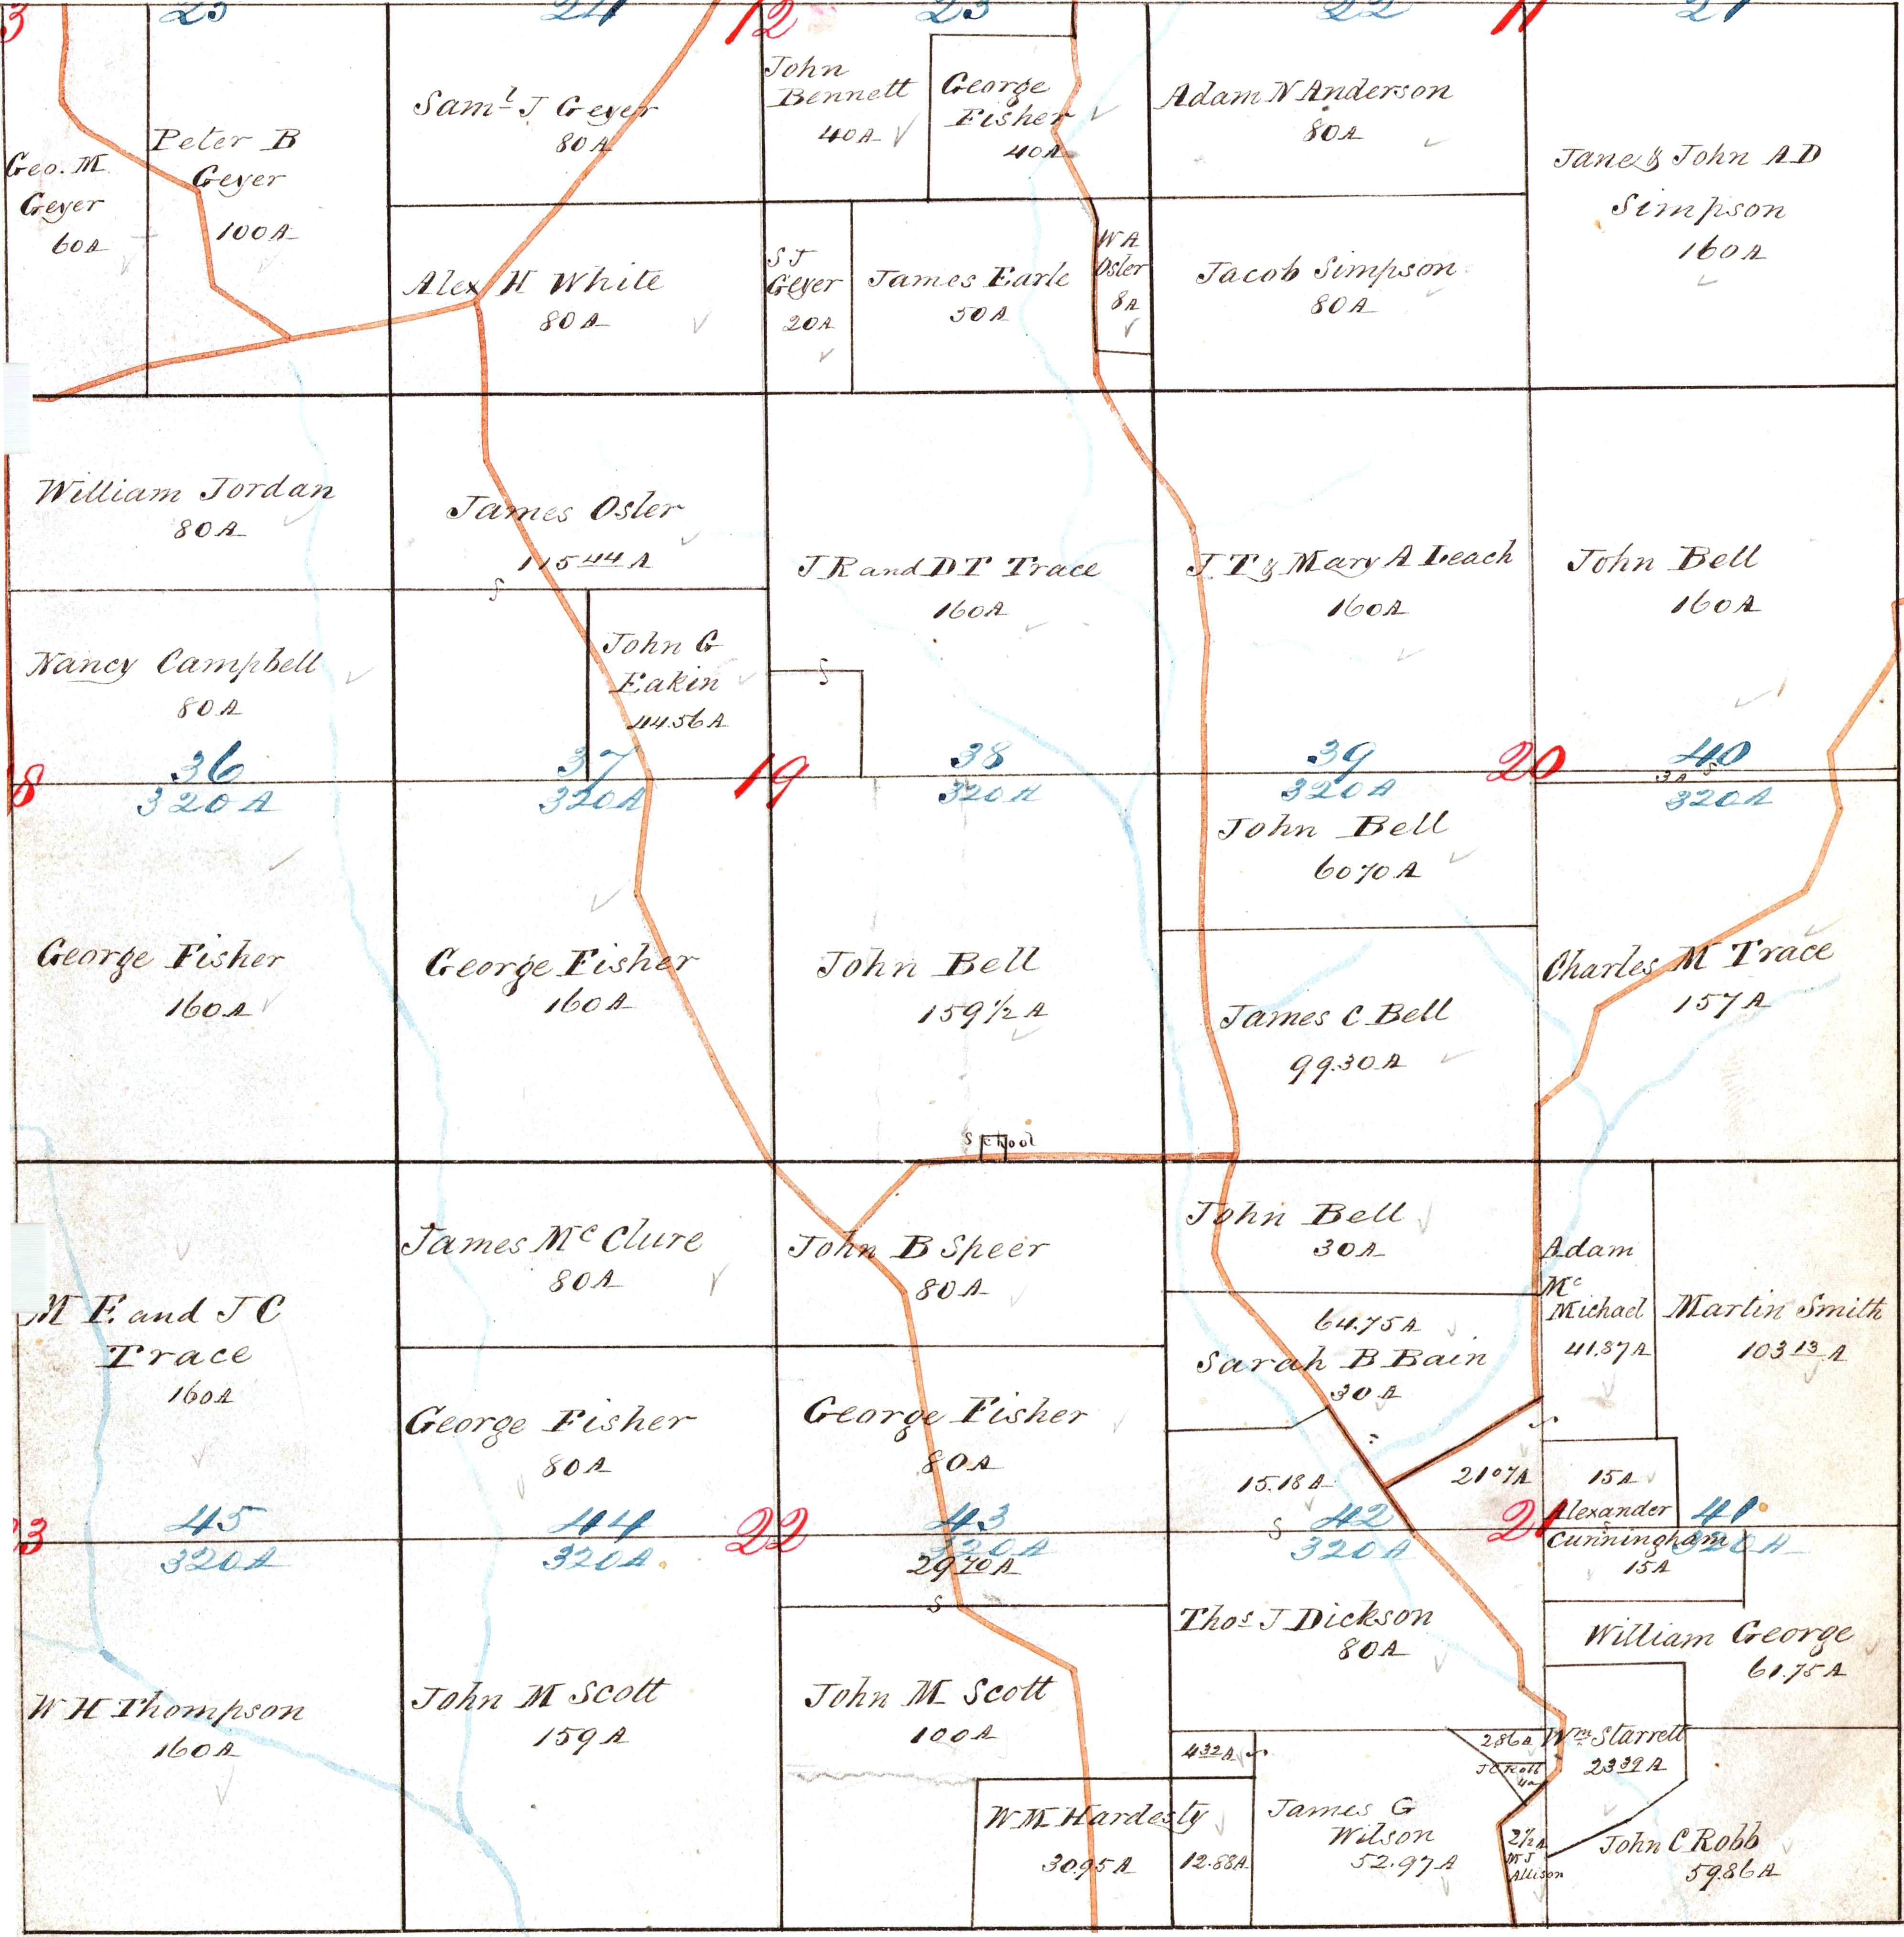 3
25
24
12
23
22
11
21
Geo. M.
Geyer
60A
Peter B
Geyer
100A
Saml J Geyer
80A
John
Bennett
40A
George
Fisher
40A
Adam N Anderson
80A
Jane & John A D
Simpson
160A
Alex H White
80A
S J
Geyer
20A
James Earle
50A
W A
Osler
8A
Jacob Simpson
80A
William Jordan
80A
James Osler
115 44 A
S
J R and D T Trace
160A
J. T & Mary A Leach
160A
John Bell
160A
Nancy Campbell
80A
John G
Eakin
44.56A
S
8
36
320A
37
320A
19
38
320A
39
320A
20
40
3A S
320A
John Bell
6070A
George Fisher
160A
George Fisher
160A
John Bell
159 1/2 A
James C Bell
99.30A
Charles M Trace
157A
School
M E and J C
Trace
160A
James Mc Clure
80A
John B Speer
80A
John Bell
30A
Adam
Mc
Michael
41.87A
Martin Smith
103 13 A
64.75A
Sarah B Bain
30A
George Fisher
80A
George Fisher
80A
S
15.18A
21 07A
15A
Alexander
Cunningham
15A
3
45
320A
44
320A
22
43
320A
29 70A
S
S
42
320A
21
41
320A
Thos J Dickson
80A
William George
61.75A
W H Thompson
160A
John M Scott
159A
John M Scott
100A
4 32A S
2.86A
Wm Starrett
23 39 A
4A
W M Hardesty
30.95A
12.88A
James G
Wilson
52.97A
2 1/2 A
M J
Allison
John C Robb
59.86A